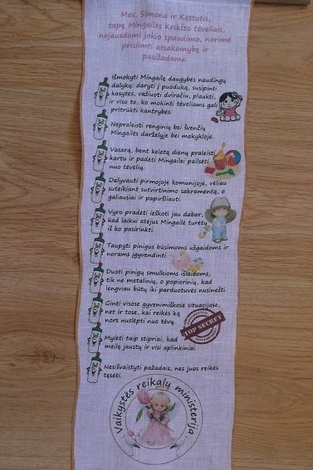 Mes, Simona ir Kęstutis,
tapę Mingailės Krikšto tėveliais,
nejausdami jokio spaudimo, norime
prisiimti atsakomybę ir
pasižadame
Išmokyti Mingailę daugybės naudingų
dalykų: daryti į puoduką, susipinti
kasytes, važiuoti dviračiu, plaukti
ir viso to, ko mokinti tėveliams gali
pritrūkti kantrybės.
Nepraleisti renginių bei švenčių
Mingailės darželyje bei mokykloje.
Vasarą, bent keletą dienų praleisti
kartu ir padėti Mingailei pailsėti
nuo tėvelių.
Dalyvauti pirmojoje komunijoje, vėliau
suteikiant sutvirtinimo sakramentą, o
galiausiai ir papiršliauti.
Vyro pradėti ieškoti jau dabar,
kad laikui atėjus Mingailė turėtų
iš ko pasirinkti.
Taupyti pinigus būsimoms užgaidoms ir
norams įgyvendinti.
Duoti pinigų smulkioms išlaidoms,
tik ne metalinių, o popierinių, kad
lengviau būtų iki parduotuvės nusinešti.
Ginti visose gyvenimiškose situacijose,
net ir tose, kai reikės ką
nors nuslėpti nuo tėvų.
TOP SECRET
Mylėti taip stipriai, kad
meilę jaustų ir visi aplinkiniai.
Nesišvaistyti pažadais, nes juos reikės
tesėti.
Vaikystės reikalų ministerija